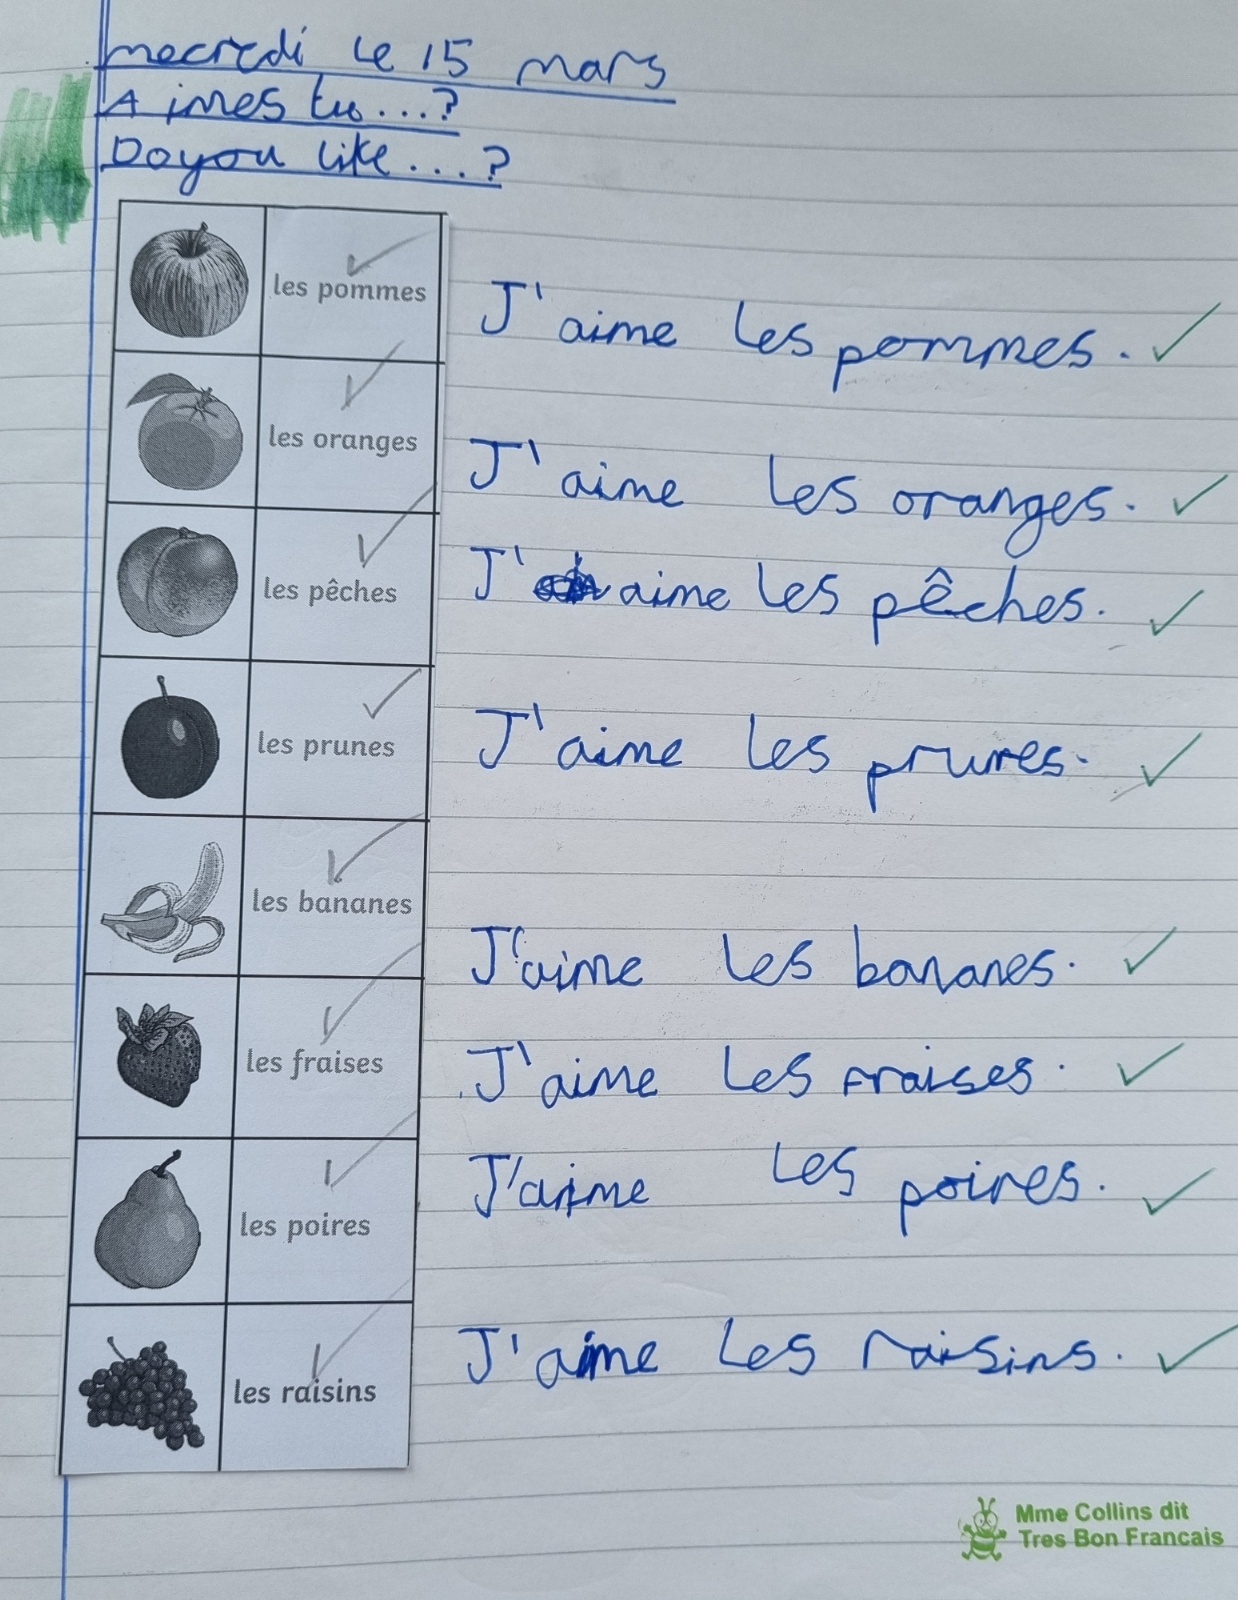 mecredi le 15 mars
Aimes tu...?
Do you like....?
les pommes
J'aime les pommes.
les oranges
J'aime les oranges.
les pêches
J'aime les pêches.
les prunes
J'aime les prunes.
les bananes
J'aime les bananes.
les fraises
J'aime les fraises.
les poires
J'aime les poires.
les raisins
J'aime les raisins.
Mme Collins dit
Tres Bon Francais